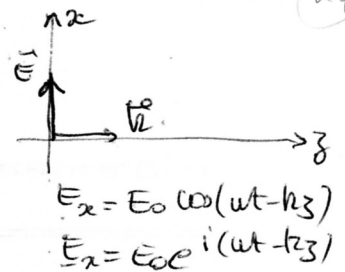 x
E⃗
k⃗
z
Ex = E0 cos(ωt-kz)
Ex = E0 e^i(ωt-kz)